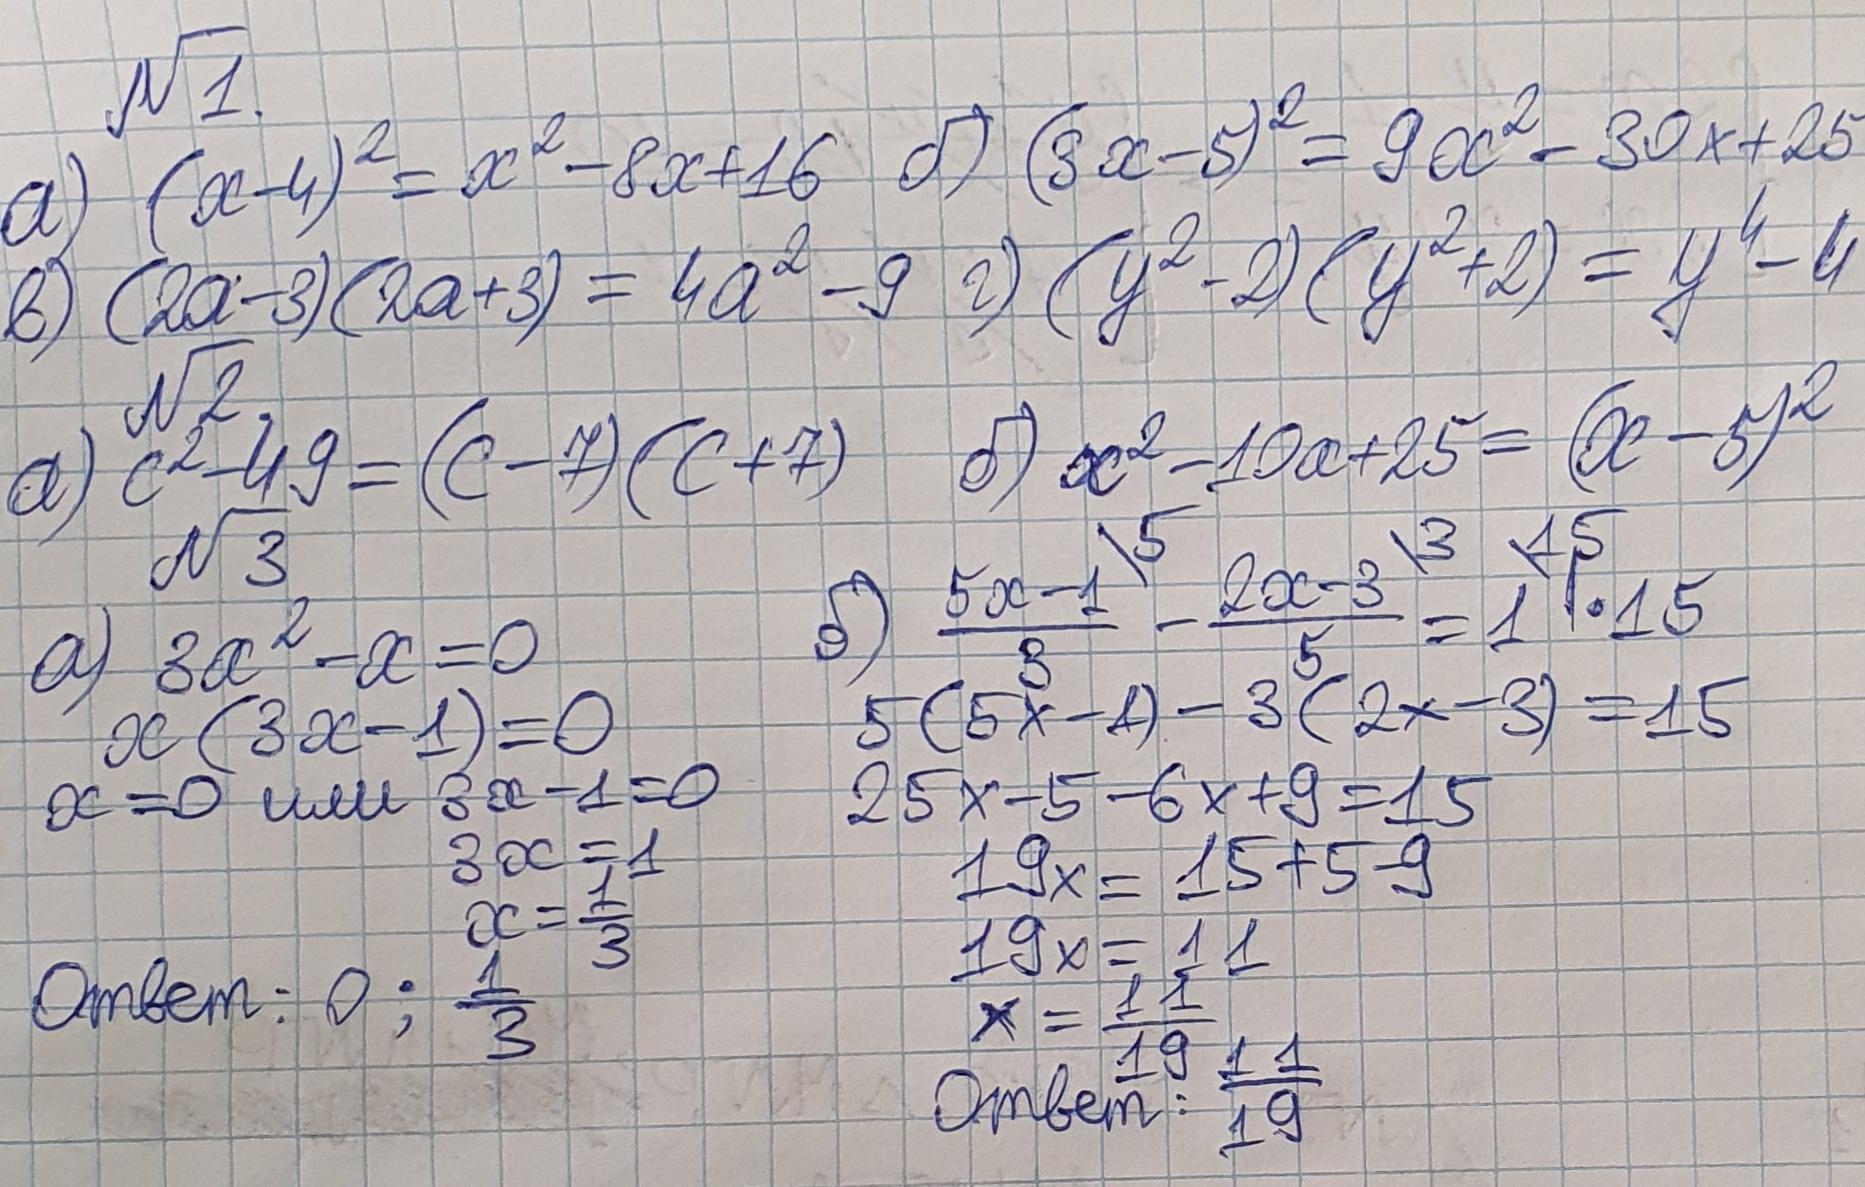 №1.
а) (x-4)² = x² - 8x + 16 б) (3x-5)² = 9x² - 30x + 25
в) (2a-3)(2a+3) = 4a² - 9 г) (y²-2)(y²+2) = y⁴ - 4
№2.
а) c² - 49 = (c-7)(c+7) б) x² - 10x + 25 = (x-5)²
№3
а) 3x² - x = 0
x(3x-1) = 0
x = 0 или 3x-1 = 0
3x = 1
x = 1/3
Ответ: 0; 1/3
б) (5x-1)/3 \5 - (2x-3)/5 \3 = 1 \15 | · 15
5(5x-1) - 3(2x-3) = 15
25x - 5 - 6x + 9 = 15
19x = 15 + 5 - 9
19x = 11
x = 11/19
Ответ: 11/19